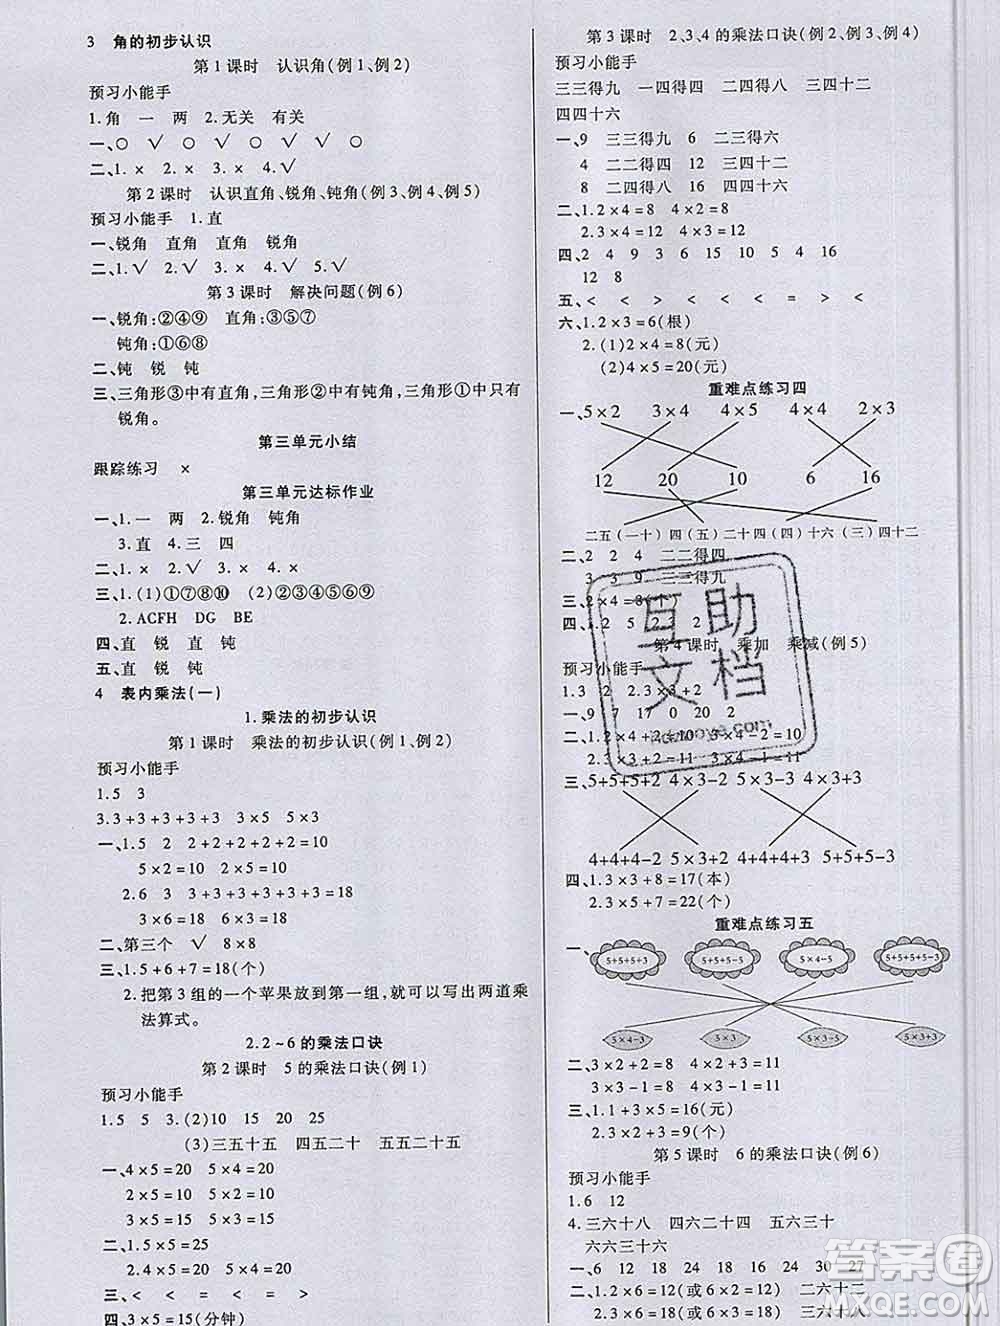 3 角的初步认识
第1课时 认识角(例1、例2)
预习小能手
1.角 一 两 2.无关 有关
一、○ √ ○ √ √ ○
二、1.× 2.× 3.× 4.√
第2课时 认识直角、锐角、钝角(例3、例4、例5)
预习小能手 1.直
一、锐角 直角 直角 锐角
二、1.√ 2.√ 3.× 4.√ 5.√
第3课时 解决问题(例6)
一、锐角:②④⑨ 直角:③⑤⑦
钝角:①⑥⑧
二、钝 锐 钝
三、三角形③中有直角,三角形②中有钝角,三角形①中只有
锐角。
第三单元小结
跟踪练习 ×
第三单元达标作业
一、1.一 两 2.锐角 钝角
3.直 4.三 四
二、1.√ 2.× 3.× 4.√
三、1.(1)①⑦⑧⑩ (2)②③④⑤⑥⑨
2.ACFH DG BE
四、直 锐 直 钝
五、直 钝 锐 钝
4 表内乘法(一)
1.乘法的初步认识
第1课时 乘法的初步认识(例1、例2)
预习小能手
1.5 3
3.3+3+3+3+3 3×5 5×3
一、1.5 2 2+2+2+2+2=10
5×2=10 2×5=10
2.6 3 3+3+3+3+3+3=18
3×6=18 6×3=18
二、第三个 √ 8×8
三、1.5+6+7=18(个)
2.把第3组的一个苹果放到第一组,就可以写出两道乘
法算式。
2.2~6的乘法口诀
第2课时 5的乘法口诀(例1)
预习小能手
1.5 5 3.(2)10 15 20 25
(3)三五十五 四五二十 五五二十五
一、4×5=20 5×4=20
2×5=10 5×2=10
3×5=15 5×3=15
二、1.5×5=25
2.4×5=20 5×4=20
三、< = < < = >
四、3×5=15(分钟)
第3课时 2、3、4的乘法口诀(例2、例3、例4)
预习小能手
三三得九 一四得四 二四得八 三四十二
四四十六
一、9 三三得九 6 二三得六
4 二二得四 12 三四十二
8 二四得八 16 四四十六
二、1.2×4=8 4×2=8
2.3×4=12 4×3=12
四、2 4 9 3 6 15 10 5 4 16
12 8
五、< < > < < < = > <
六、1.2×3=6(根)
2.(1)2×4=8(元)
(2)4×5=20(元)
重难点练习四
一、5×2 3×4 4×5 4×4 2×3
12 20 10 6 16
二五(一十) 四(五)二十 四(四)十六 (三)四十二
二、2 2 4 二二得四
3 3 9 三三得九
三、2×4=8(个)
四、1.2 5 2.3 2
第4课时 乘加 乘减(例5)
预习小能手
1.3 2 2.3×3+2
一、9 7 17 0 20 2
二、1.2×4+2=10 3×4-2=10
2.3×3+2=11 4×3-1=11
三、5+5+5-2 4×3-2 5×3-2 4×3+3
4+4+4-2 5×3+2 4+4+4+3 5+5+5-3
四、1.3×3+8=17(本)
2.3×5+7=22(个)
重难点练习五
一、5+5+5+3 5+5+5-5 5×4-5 5+5+5+5-3
5×4-3 5×3 5×3-5 5×3+3
二、3×2+2=8 4×2+3=11
3×3-1=8 3×4-1=11
三、1.1+3×5=16(元)
2.3×2+3=9(个)
第5课时 6的乘法口诀(例6)
预习小能手
1.6 12
4.三六十八 四六二十四 五六三十
六六三十六
一、6 12 18 9 12 16 18 24 30 27
二、1.2×6=12(或6×2=12) 二六十二
2.3×6=18(或6×3=18) 三六十八
互助
文档
答案圈
MXQE.COM